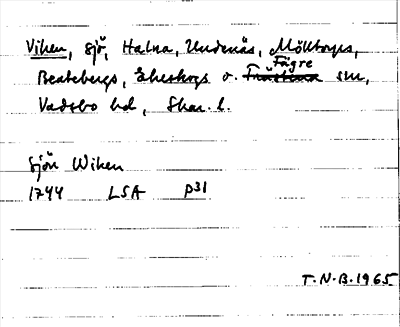 Viken, sjö, Halna, Undenäs, Mölltorps,
Fägre
Beatebergs, Ekeskogs o. sm,
Vadsbo hd, Skar. l.
Sjön Wiken
1744 LSA P31
T.N.B.1965